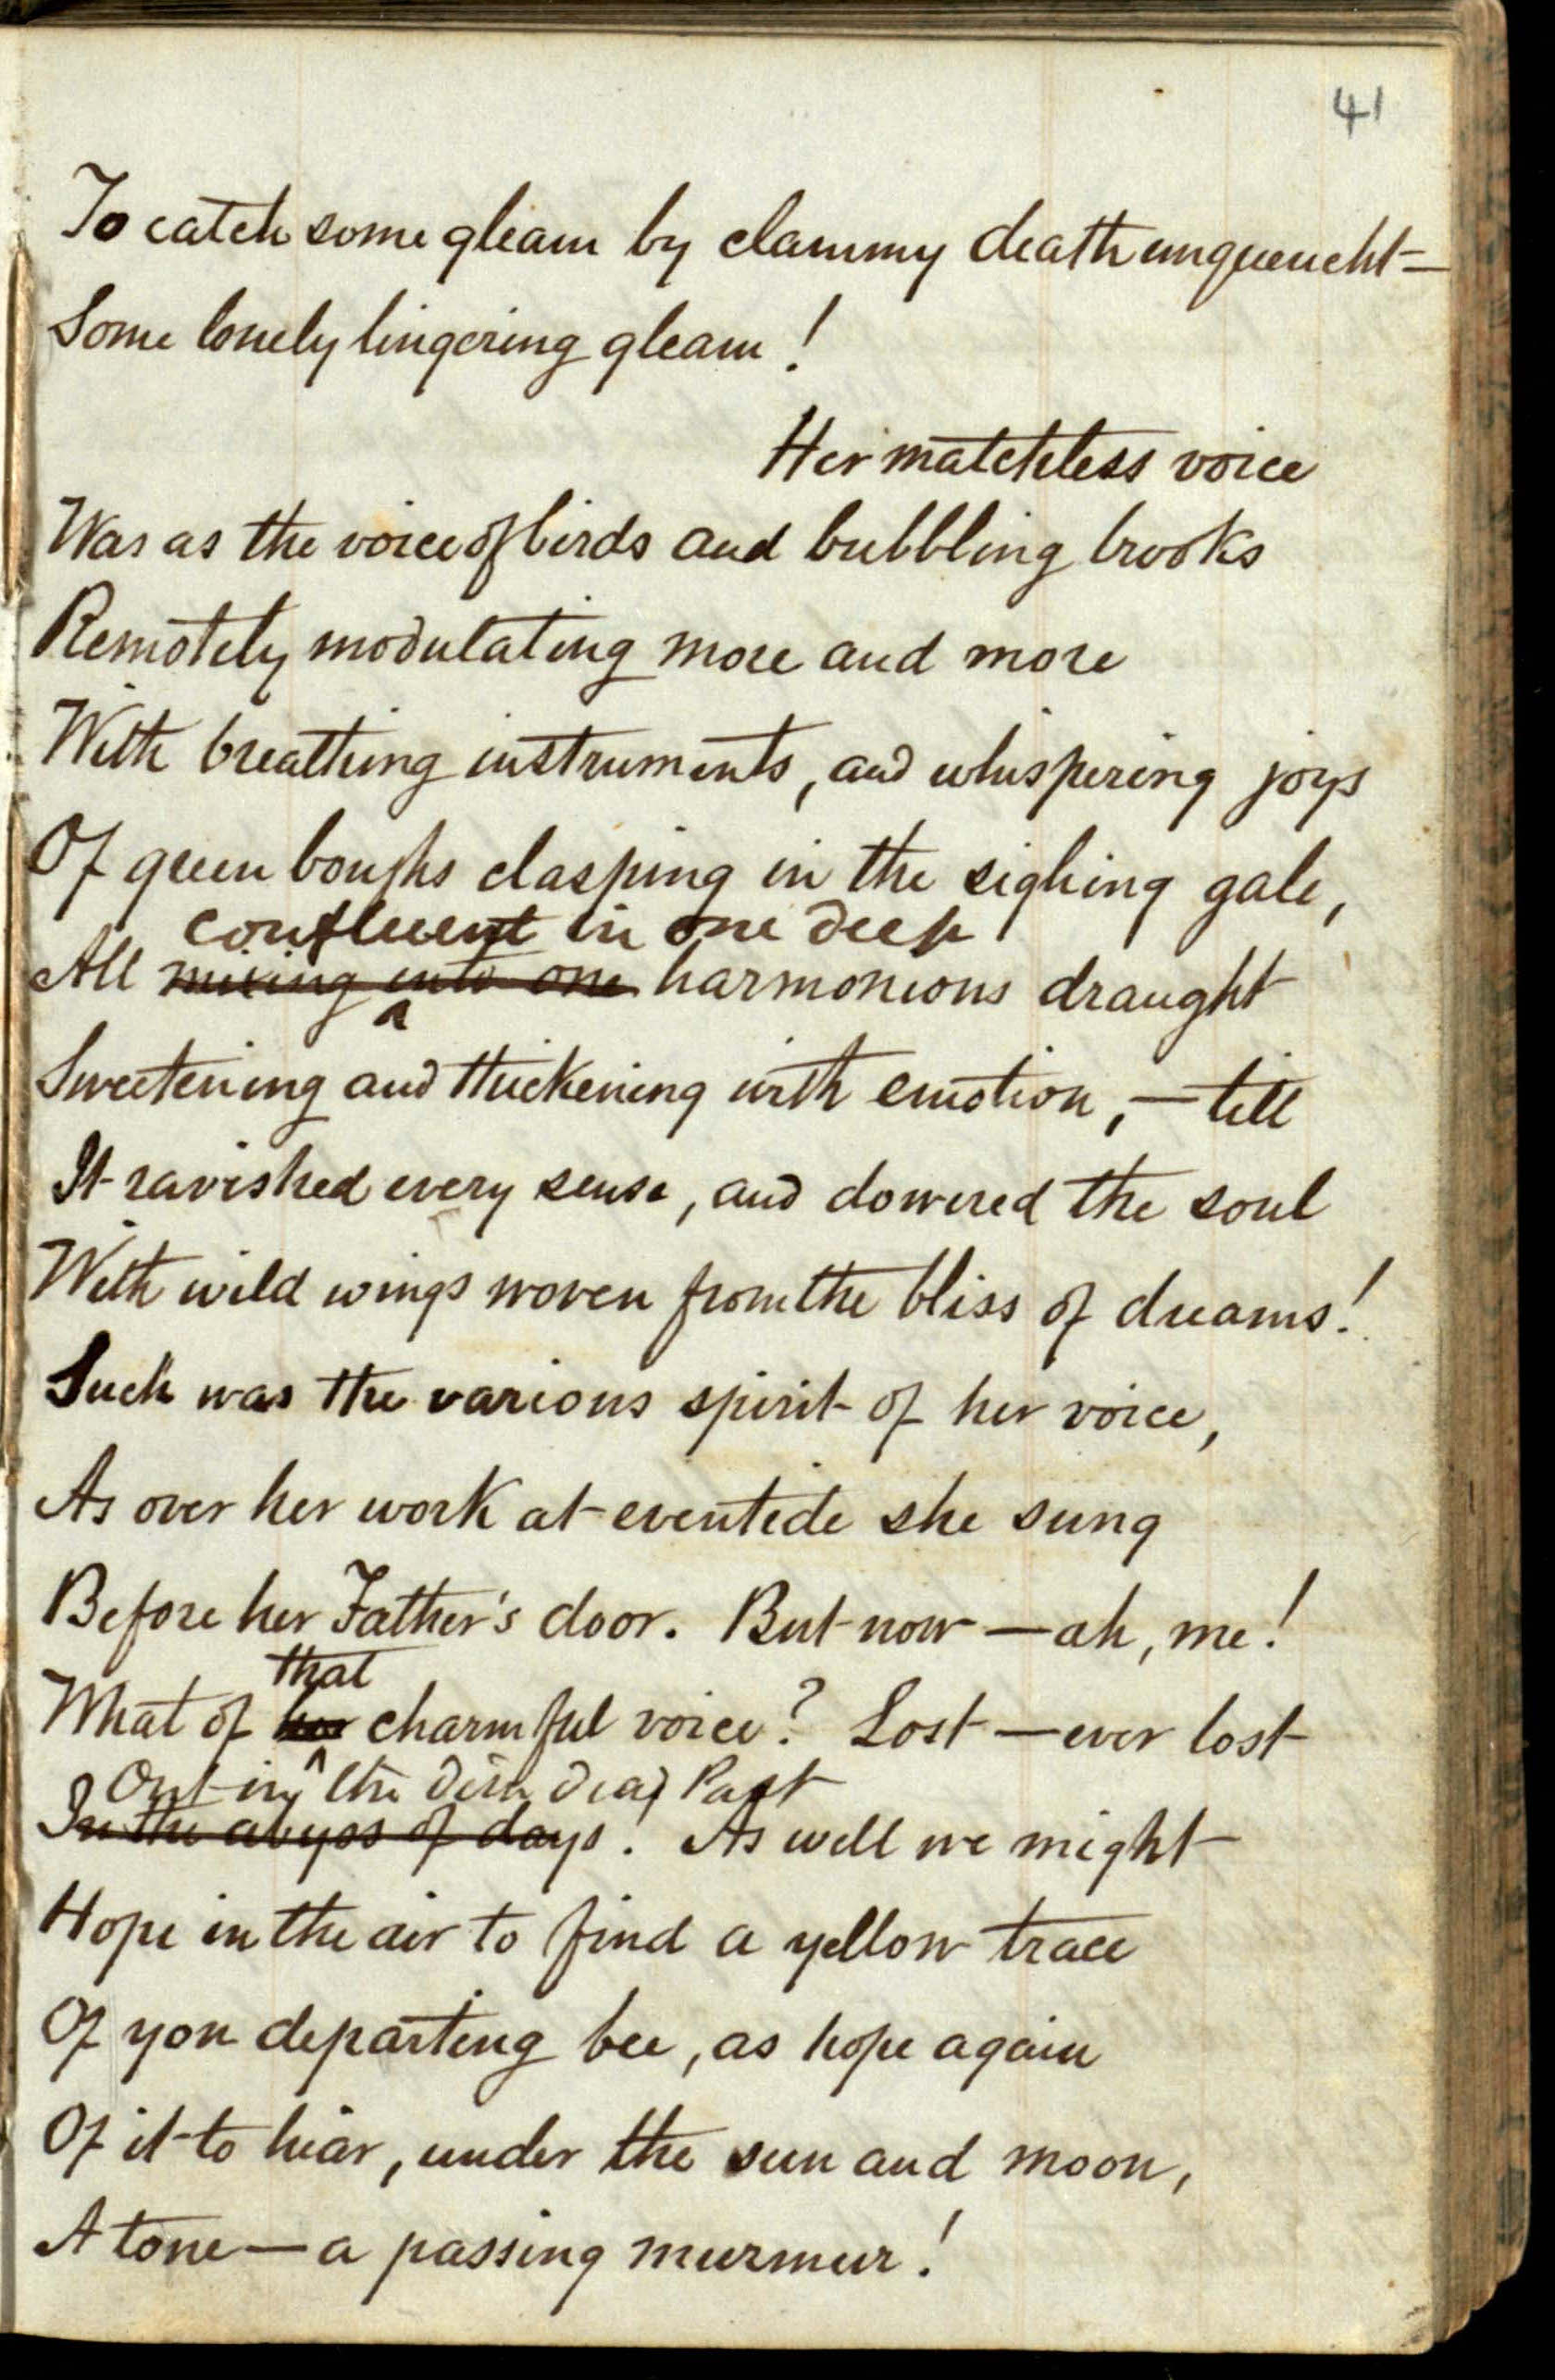 41
To catch some gleam by clammy death unquencht—
Some lonely lingering gleam!
Her matchless voice
Was as the voice of birds and bubbling brooks
Remotely modulating more and more
With breathing instruments, and whispering joys
Of green boughs clasping in the sighing gale,
confluent in one deep
All mixing into one harmonious draught
Sweetening and thickening with emotion, — till
It ravished every sense, and dowered the soul
With wild wings woven from the bliss of dreams!
Such was the various spirit of her voice,
As over her work at eventide she sung
Before her Father's door. But now — ah, me!
that
What of her charmful voice? Lost — ever lost
Out in the dim dead Past
In the abyss of days! As well we might
Hope in the air to find a yellow trace
Of yon departing bee, as hope again
Of it to hear, under the sun and moon,
A tone — a passing murmur!